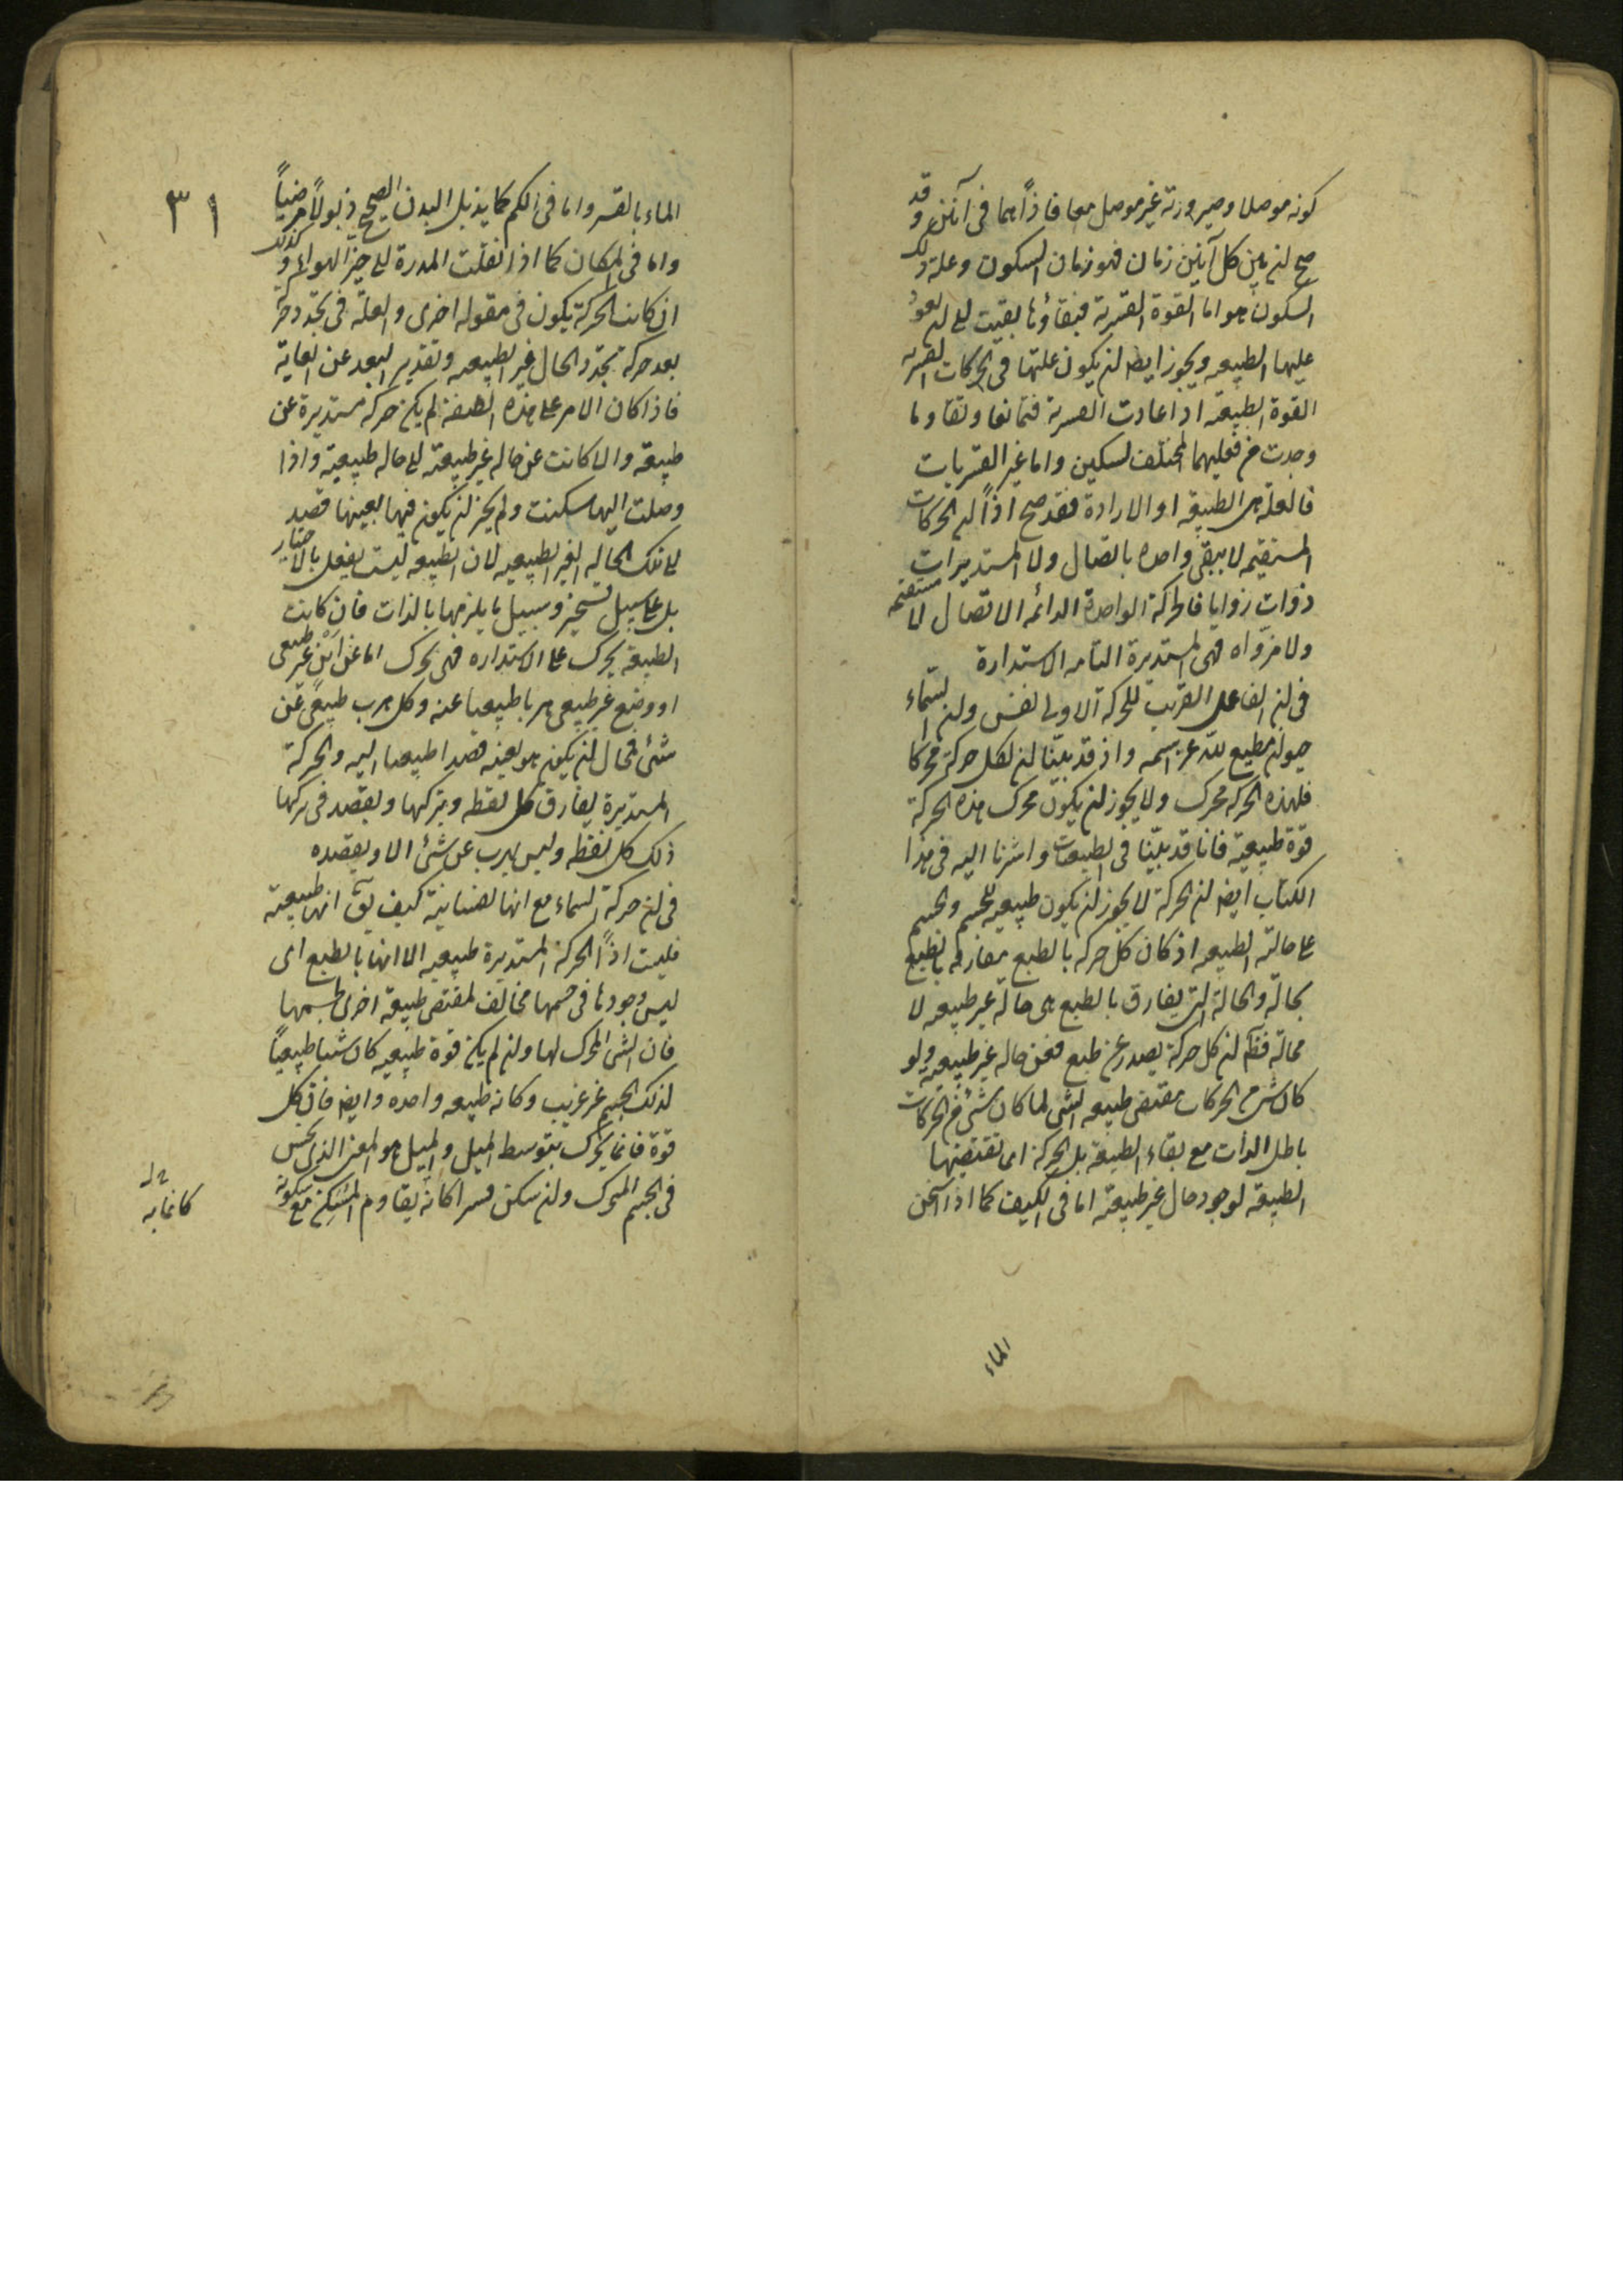 كونه موصلا وصيرورته غير موصل معا فاذاً هما في آنين وقد
صح ان بين كل آنين زمان فهو زمان السكون وعلة ذلك
السكون هو اما القوة القسرية فبقاؤها بقيت الى ان يعود
عليها الطبيعه ويجوز ايضا ان يكون علتها في الحركات القسريه
القوة الطبيعة اذا عادت القسرية فتمانعا وتقاوما
وجدت من فعليهما المختلف تسكين واما غير القسريات
فالعلة هي الطبيعة او الارادة فقد صح اذاً ان الحركات
المستقيمه لا يبقى واحده بالاتصال ولا المستديرات
ذوات زوايا فالحركة الواحدة الدائمه الاتصال لا مستقيمه
ولا مزواه فهي المستديرة التامه الاستدارة
في ان الفاعل القريب للحركة الاولى نفس وان السماء
حيوان مطيع لله عز اسمه واذ قد بينّا ان لكل حركة محركا
فلهذه الحركه محرك ولا يجوز ان يكون محرك هذه الحركة
قوّة طبيعية فانا قد بينّا في الطبيعيات واشرنا اليه في هذا
الكتاب ايضا ان الحركة لا يجوز ان يكون طبيعيه للجسم والجسم
على حالته الطبيعيه اذ كان كل حركه بالطبع مفارقه بالطبع
لحالة والحالة التي يفارق بالطبع هي حالة غير طبيعيه لا
محالة فظاهر ان كل حركة يصدر عن طبع فعن حاله غير طبيعية ولو
كان شئ من الحركات مقتضى طبيعه الشئ لما كان شئ من الحركات
باطل الذات مع بقاء الطبيعة بل الحركة انما تقتضيها
الطبيعة لوجود حال غير طبيعية اما في الكيف كما اذا سخن
الماء
٣١
الماء بالقسر واما في الكم كما يذبل البدن الصحيح ذبولاً مرضياً
واما في المكان كما اذا نقلت المدرة الى حيز الهواء وكذلك
ان كانت الحركة يكون في مقوله اخرى والعلّة في تجدد حركة
بعد حركة تجدد الحال غير الطبيعيه وتقدير البعد عن الغاية
فاذا كان الامر على هذه الصفة لم يكن حركه مستديرة عن
طبيعة والا كانت عن حاله غير طبيعية الى حاله طبيعية واذا
وصلت اليها سكنت ولم يجز ان يكون فيها بعينها قصد
الى تلك الحاله الغير الطبيعيه لان الطبيعه ليست يفعل بالاختيار
بل على سبيل تسخير وسبيل ما يلزمها بالذات فان كانت
الطبيعة يحرك على الاستداره فهي يحرك اما عن اين غير طبيعي
او وضع غير طبيعي هربا طبيعيا عنه وكل هرب طبيعي عن
شئ فمحال ان يكون هو بعينه قصدا طبيعيا اليه والحركة
المستديرة يفارق كل نقطه ويتركها ويقصد في تركها
ذلك كل نقطه وليس يهرب عن شئ الا ويقصده
في ان حركة السماء مع انها نفسانية كيف يق انها طبيعية
فليست اذاً الحركة المستديرة طبيعيه الا انها بالطبع اى
ليس وجودها في جسمها مخالف لمقتضى طبيعة اخرى لجسمها
فان الشئ المحرك لها وان لم يكن قوة طبيعيه كان شيئا طبيعياً
لذلك الجسم غير غريب وكانه طبيعه واحده وايضا فان كل
قوة فانما يحرك بتوسط الميل والميل هو المعنى الذي يحس
في الجسم المتحرك وان سكن قسرا كانه يقاوم المسكن مع سكونه
كانما به